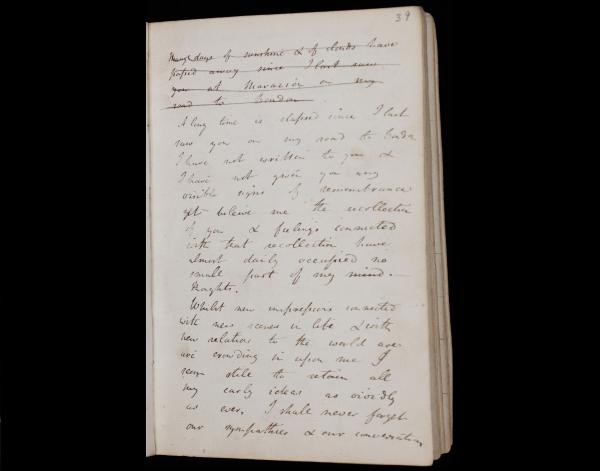 39
Many days of sunshine & of clouds have
passed away since I last saw
you at Marazion on my
road to London
A long time is elapsed since I last
saw you on my road to London
I have not written to you &
I have not given you any
visible signs of remembrance
yet believe me the recollection
of you & feelings connected
with that recollection have
almost daily occupied no
small part of my mind.
thoughts.
Whilst new impressions connected
with new scenes in life & with
new relations to the world are
are crowding in upon me I
seem still to retain all
my early ideas as vividly
as ever. I shall never forget
our sympathies & our conversations